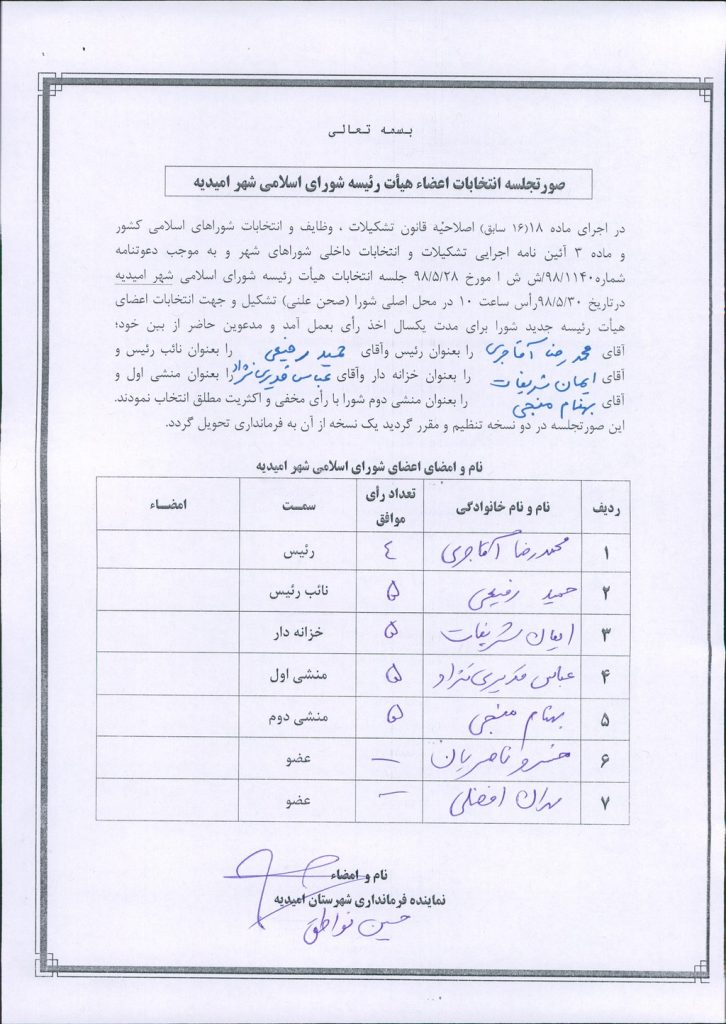 بسمه تعالی
صورتجلسه انتخابات اعضاء هیأت رئیسه شورای اسلامی شهر امیدیه
در اجرای ماده ۱۸(۱۶ سابق) اصلاحیّه قانون تشکیلات ، وظایف و انتخابات شوراهای اسلامی کشور
و ماده ۳ آئین نامه اجرایی تشکیلات و انتخابات داخلی شوراهای شهر و به موجب دعوتنامه
شماره۹۸/۱۱۴۰/ش ش ا مورخ ۹۸/۵/۲۸ جلسه انتخابات هیأت رئیسه شورای اسلامی شهر امیدیه
درتاریخ ۹۸/۵/۳۰رأس ساعت ۱۰ در محل اصلی شورا (صحن علنی) تشکیل و جهت انتخابات اعضای
هیأت رئیسه جدید شورا برای مدت یکسال اخذ رأی بعمل آمد و مدعوین حاضر از بین خود؛
آقای محمدرضا آقاجری را بعنوان رئیس وآقای حمید رفیعی را بعنوان نائب رئیس و
آقای ایمان شریفات را بعنوان خزانه دار وآقای عباس قدیری نژاد را بعنوان منشی اول و
آقای بهنام منجی را بعنوان منشی دوم شورا با رأی مخفی و اکثریت مطلق انتخاب نمودند.
این صورتجلسه در دو نسخه تنظیم و مقرر گردید یک نسخه از آن به فرمانداری تحویل گردد.
نام و امضای اعضای شورای اسلامی شهر امیدیه
ردیف نام و نام خانوادگی تعداد رأی موافق سمت امضاء
۱ محمدرضا آقاجری ٤ رئیس
۲ حمید رفیعی ۵ نائب رئیس
۳ ایمان شریفات ۵ خزانه دار
۴ عباس قدیری نژاد ۵ منشی اول
۵ بهنام منجی ۵ منشی دوم
۶ خسرو ناصریان — عضو
۷ مهران افضلی — عضو
نام و امضاء
نماینده فرمانداری شهرستان امیدیه
حسین نواطق